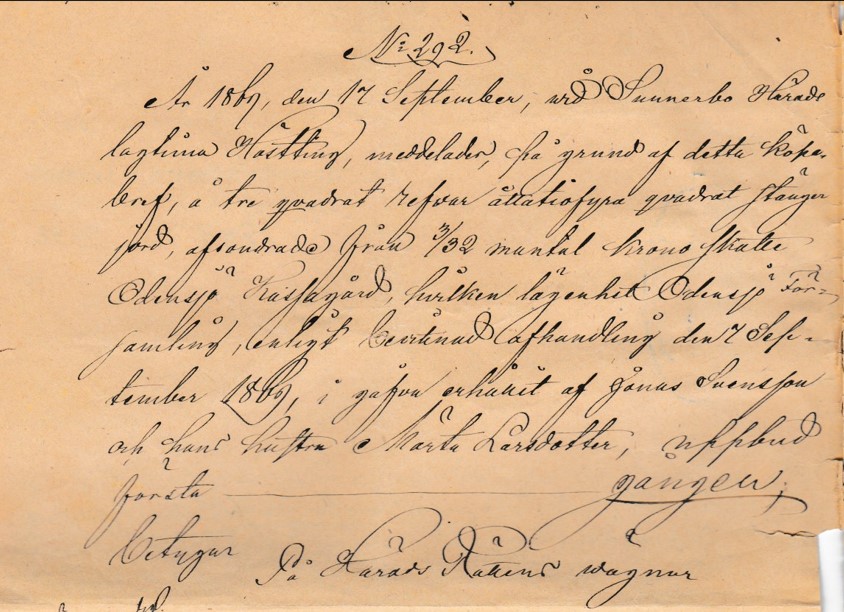 No 292.
År 1869, den 17 September, wid Sunnerbo Härads
lagtima Höstting, meddelades, på grund af detta köpe-
bref, å tre qvadrat refvar åttatiofyra qvadrat stänger
jord, afsöndrade från 3/32 mantal krono skatte
Odensjö Kassagård, hvilken lägenhet Odensjö För-
samling, enligt bevitnad afhandling den 7 Sep-
tember 1869, i gåfva erhållit af Jonas Svensson
och hans hustru Märta Larsdotter, uppbud
första gången,
betygar
På Härads Rättens wägnar